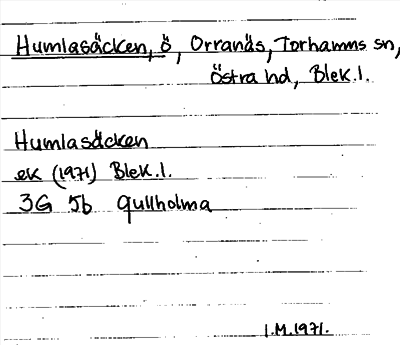 Humlasäcken, ö, Orranäs, Torhamns sn,
Östra hd, Blek.l.
Humlasäcken
ek (1971) Blek.l.
3G 5b Gullholma
I.M.1971.